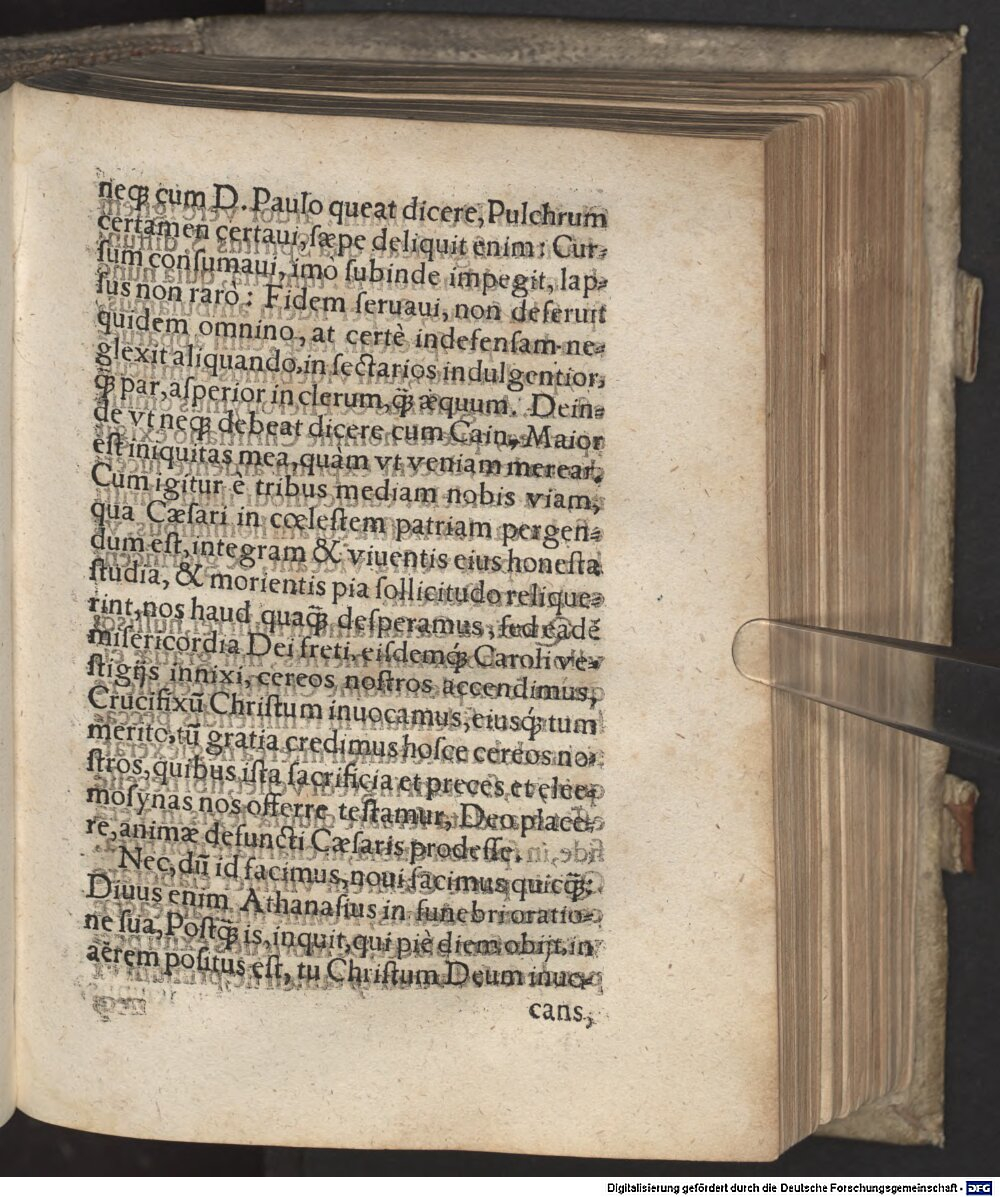 neq́ꝫ cum D. Paulo queat dicere, Pulchrum
certamen certaui, ſæpe deliquit enim: Cur-
ſum conſumaui, imò ſubinde impegit, lap-
ſus non rarò: Fidem ſeruaui, non deſeruit
quidem omnino, at certè indefenſam ne-
glexit aliquando, in ſectarios indulgentior,
q̃ꝫ par, aſperior in clerum, q̃ꝫ æquum. Dein-
de vt neq́ꝫ debeat dicere cum Cain, Maior
eſt iniquitas mea, quàm vt veniam merear.
Cum igitur è tribus mediam nobis viam,
qua Cæſari in cœleſtem patriam pergen-
dum eſt, integram & viuentis eius honeſta
ſtudia, & morientis pia ſollicitudo relique-
rint, nos haud quaq̃ꝫ deſperamus, ſed eadē
miſericordia Dei freti, eiſdemq́ꝫ Caroli ve-
ſtigijs innixi, cereos noſtros accendimus,
Crucifixū Chriſtum inuocamus, eiusq́ꝫ tum
merito, tū gratia credimus hoſce cereos no-
ſtros, quibus iſta ſacrificia et preces et elee-
moſynas nos offerre teſtamur, Deo place-
re, animæ defuncti Cæſaris prodeſſe.
Nec, dū id facimus, noui facimus quicq̃ꝫ:
Diuus enim Athanaſius in funebri oratio-
ne ſua, Poſtq̃ꝫ is, inquit, qui piè diem obijt, in
aërem poſitus eſt, tu Chriſtum Deum inuo-
cans,
Digitalisierung gefördert durch die Deutsche Forschungsgemeinschaft - DFG